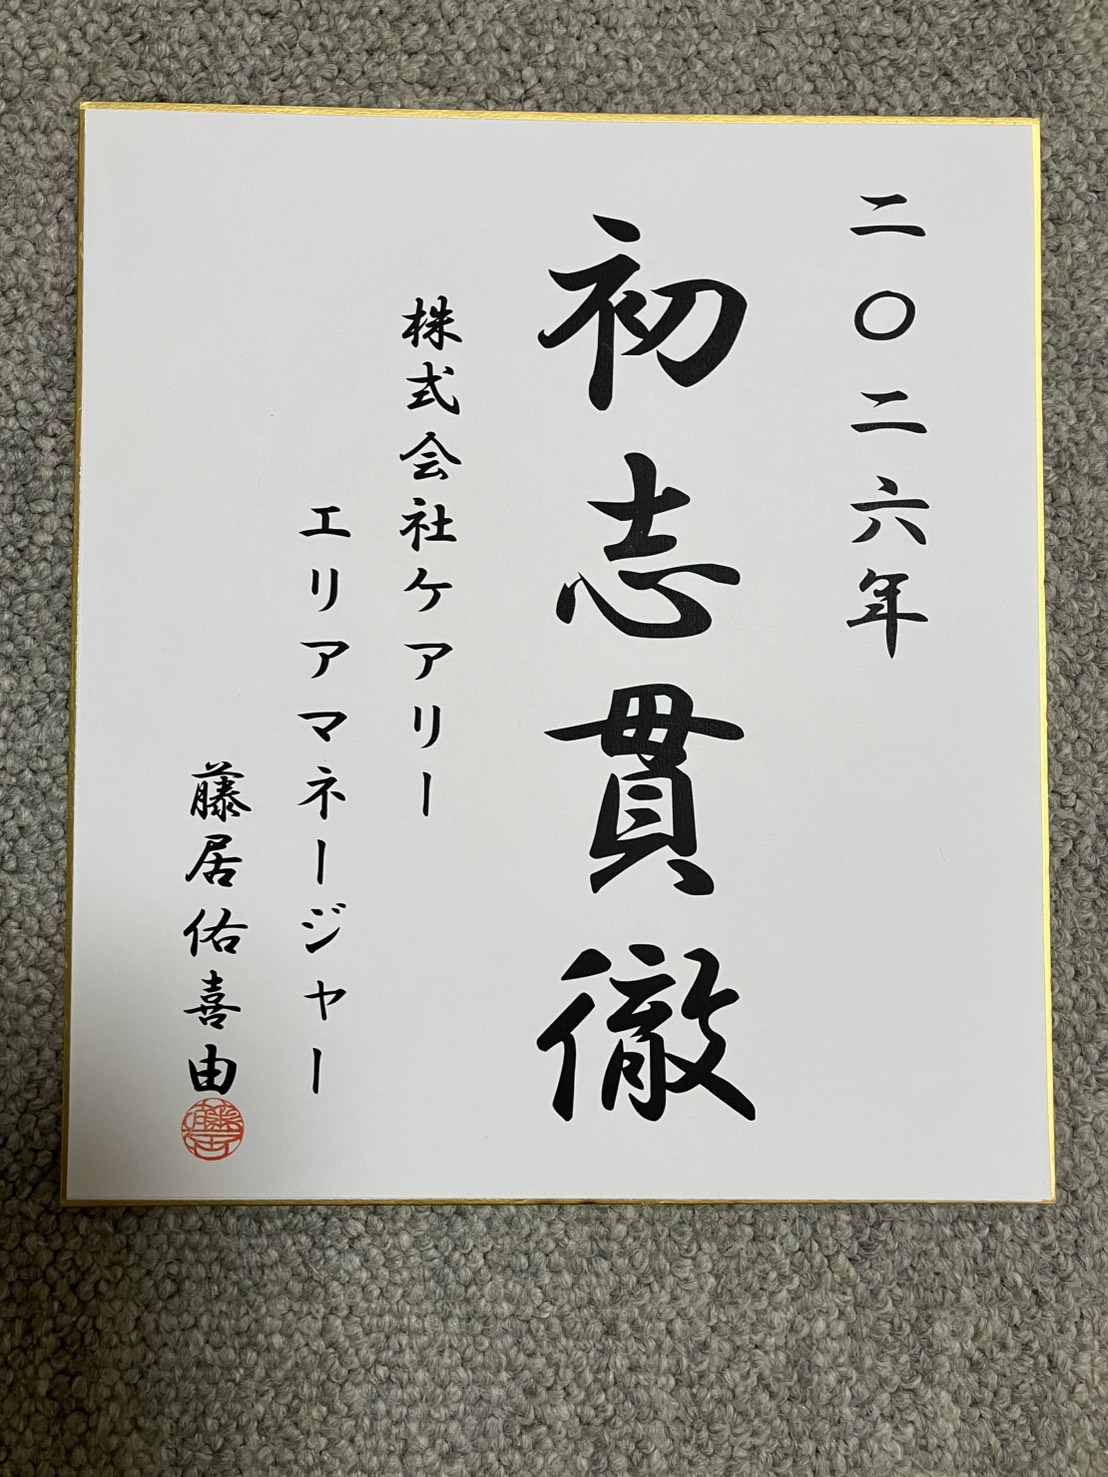 二〇二六年
初志貫徹
株式会社ケアリー
エリアマネージャー
藤居佑喜由